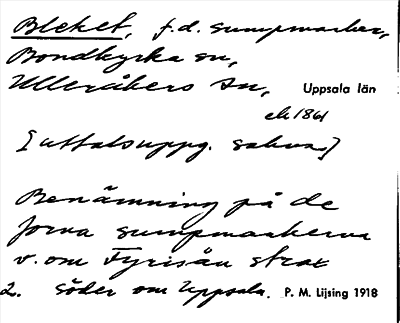 Bleket, f.d. sumpmarker,
Bondkyrka sn,
Ulleråkers hd, Uppsala län
ek 1861
[uttalsuppg. saknas]
Benämning på de
forna sumpmarkerna
v. om Fyrisån strax
2. söder om Uppsala. P. M. Lijsing 1918